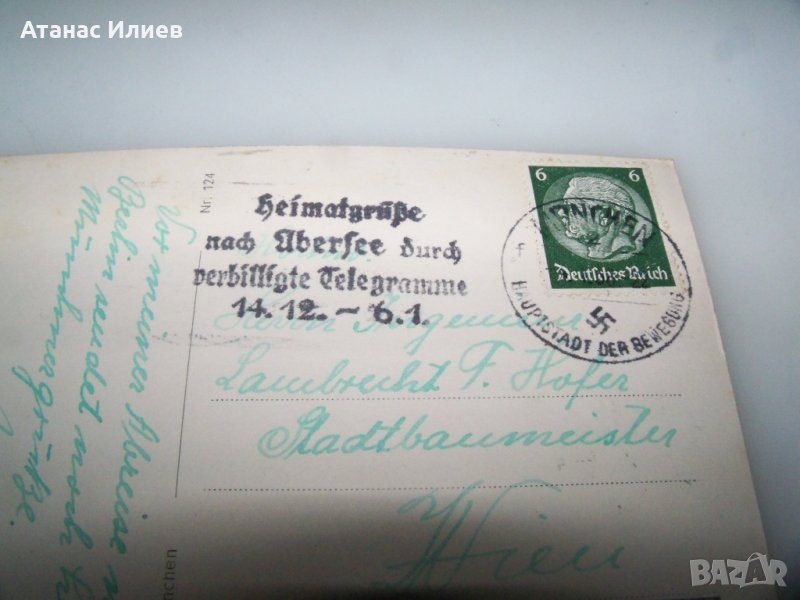 Атанас Илиев
Nr. 124
Heimatgrüße
nach Übersee durch
verbilligte Telegramme
14.12. - 6.1.
6 6
Deutsches Reich
MÜNCHEN
HAUPTSTADT DER BEWEGUNG
Herrn
Lambrecht F. Hofer
Stadtbaumeister
Wien
Vor meiner Abreise
Münchnergrüße.
nchen
BAZAR